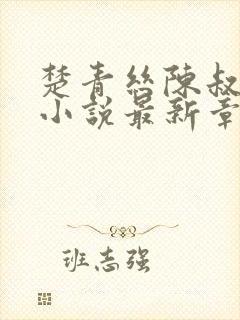 楚青絲陳叔
小說最新章
班志强